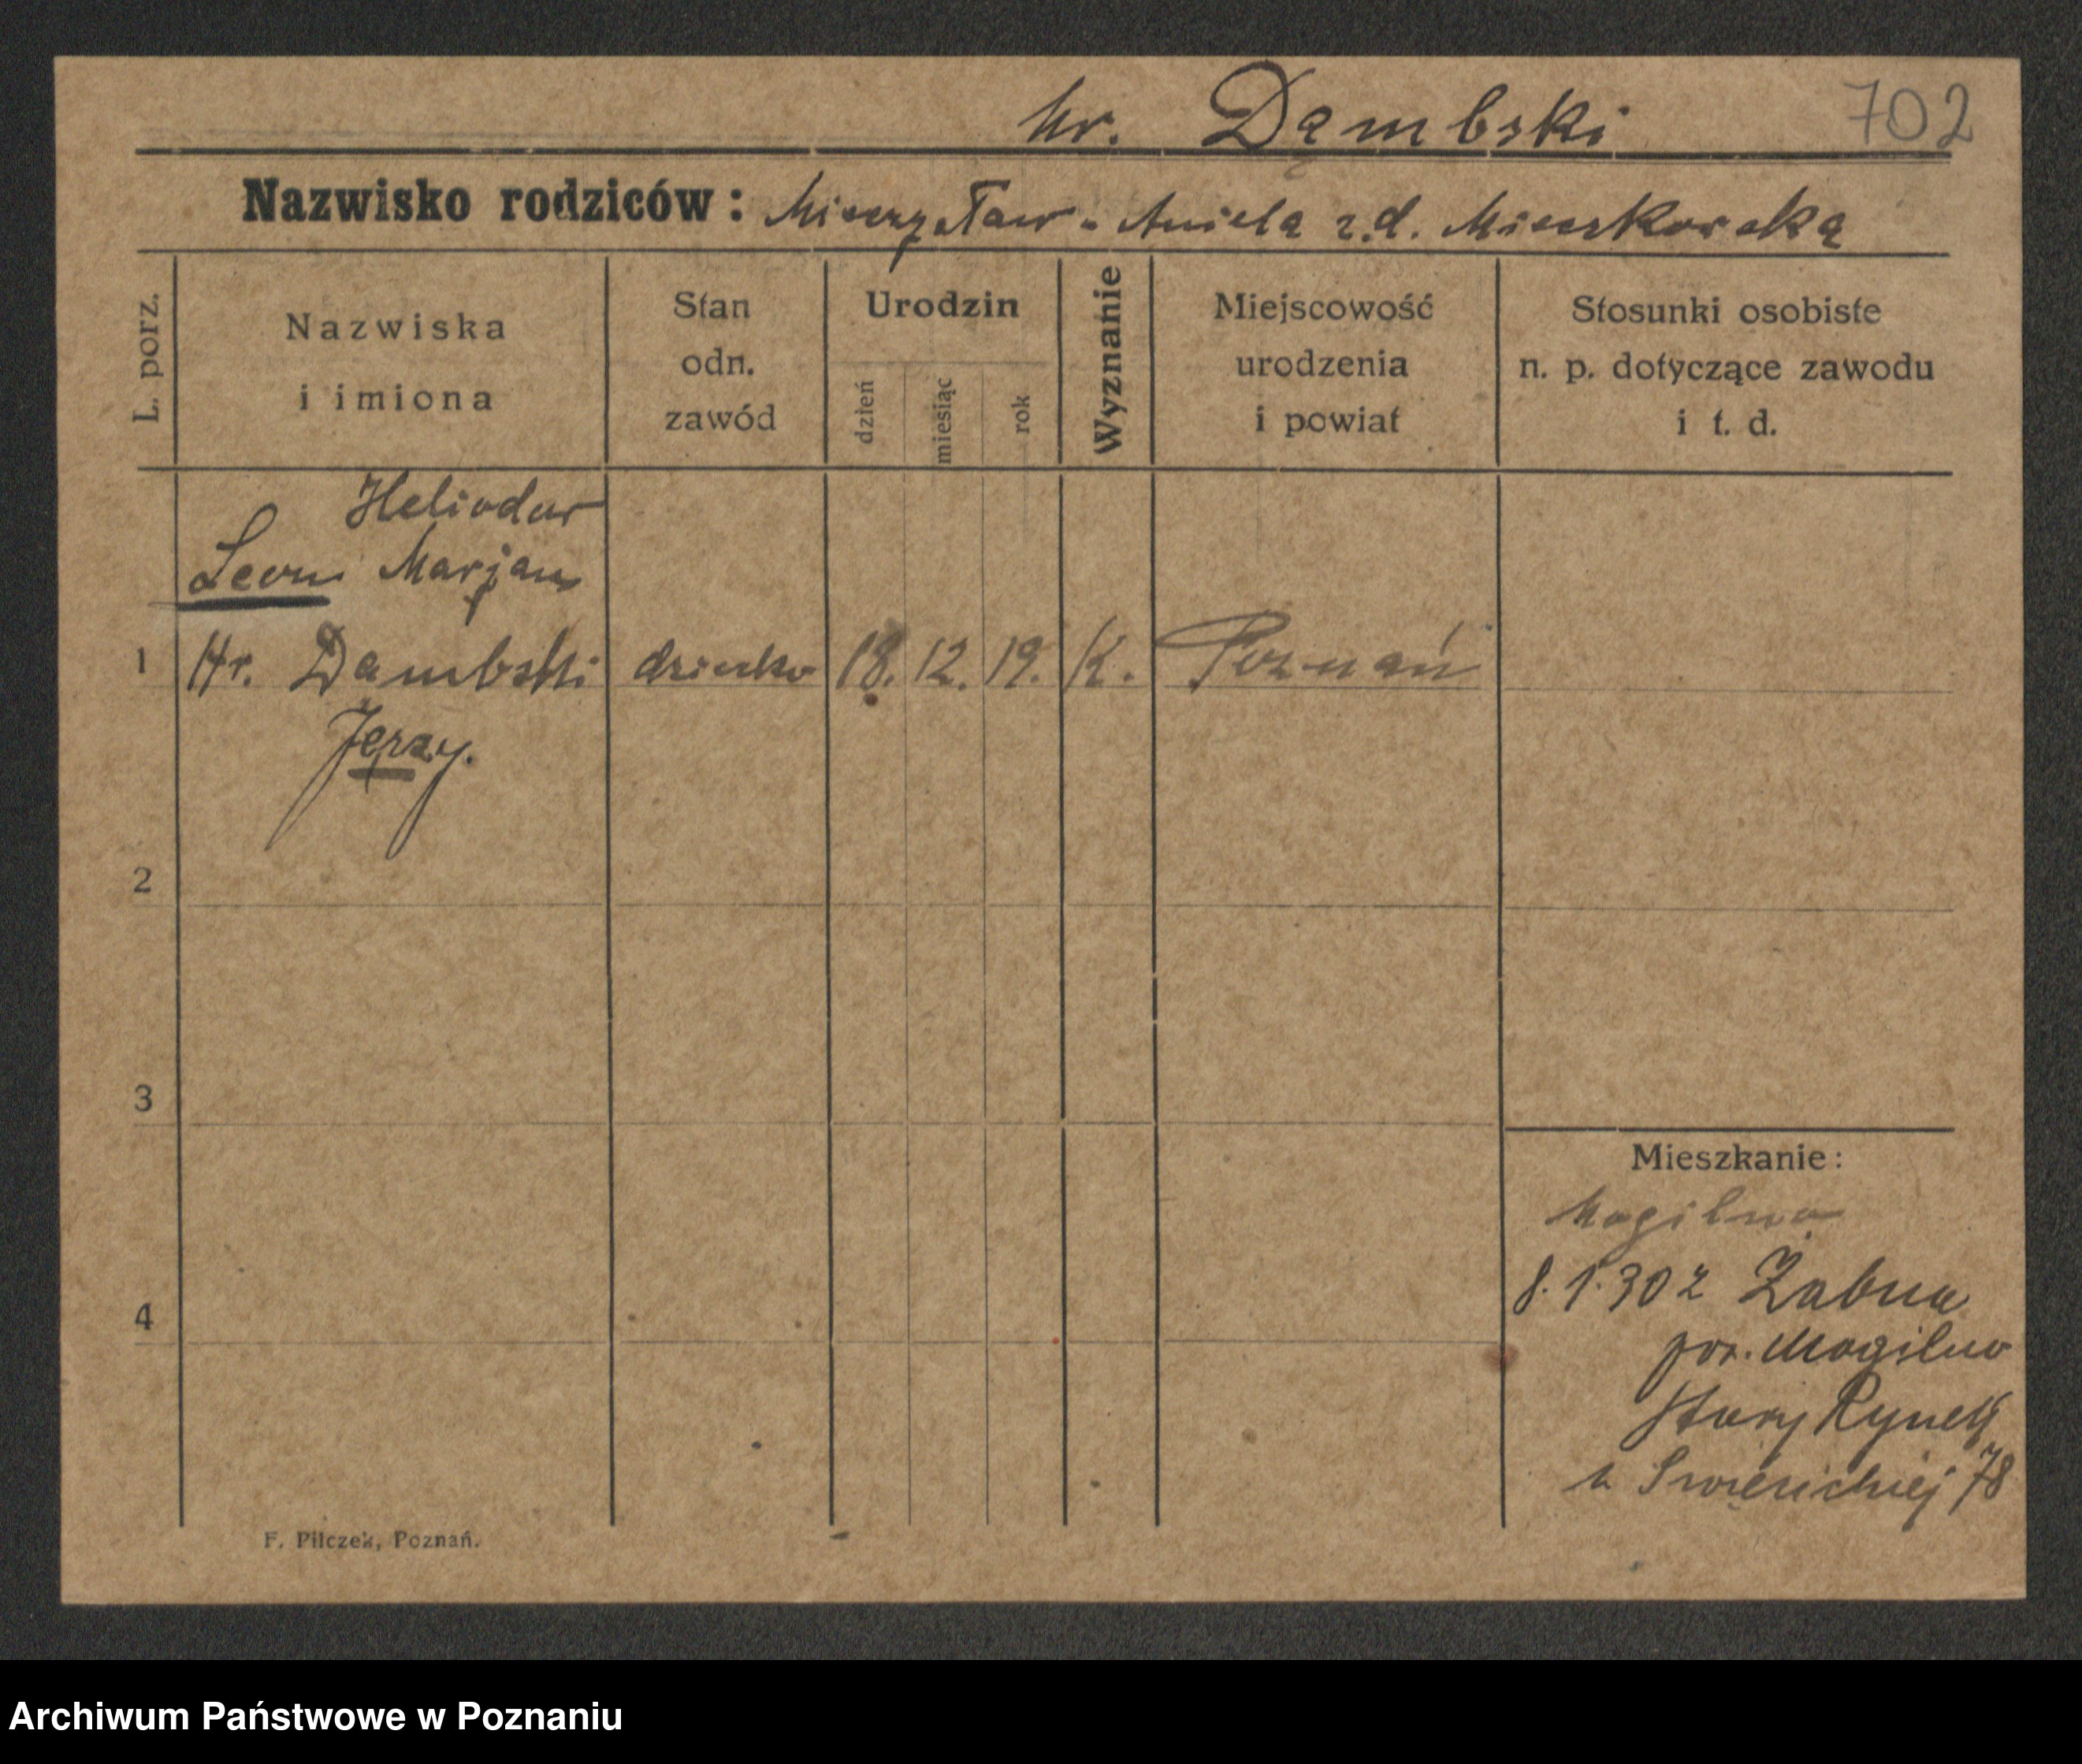 hr. Dąmbski 702
Nazwisko rodziców: Mieczysław - Aniela z.d. Mierzkowska
L. porz.
Nazwiska
i imiona
Stan
odn.
zawód
Urodzin
dzień
miesiąc
rok
Wyznanie
Miejscowość
urodzenia
i powiat
Stosunki osobiste
n. p. dotyczące zawodu
i t. d.
Heliodor
Leon Marjan
1 Hr. Dambski dziecko 18. 12. 19. K. Poznań
Jerzy.
2
3
4
Mieszkanie:
Mogilno
8.1.30 z Żabna
pow. Mogilno
Stary Rynek
78
F. Pilczek, Poznań.
Archiwum Państwowe w Poznaniu